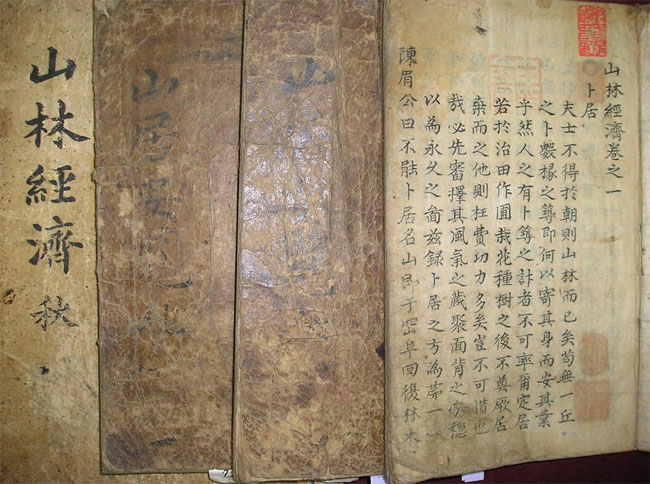 山林經濟卷之一
卜居
夫士不得於朝則山林而已矣苟無一丘
之卜數椽之築即何以寄其身而安其業
乎然人之有卜築之計者不可率爾定居
若於治田作圃栽花種樹之後不奠厥居
棄而之他則枉費功力多矣豈不可惜也
哉必先審擇其風氣之藏聚面背之安穩
以為永久之啚兹録卜居之方為第一
陳眉公曰不能卜居名山即于崗阜回復林木
山
山居
山林經濟 秋